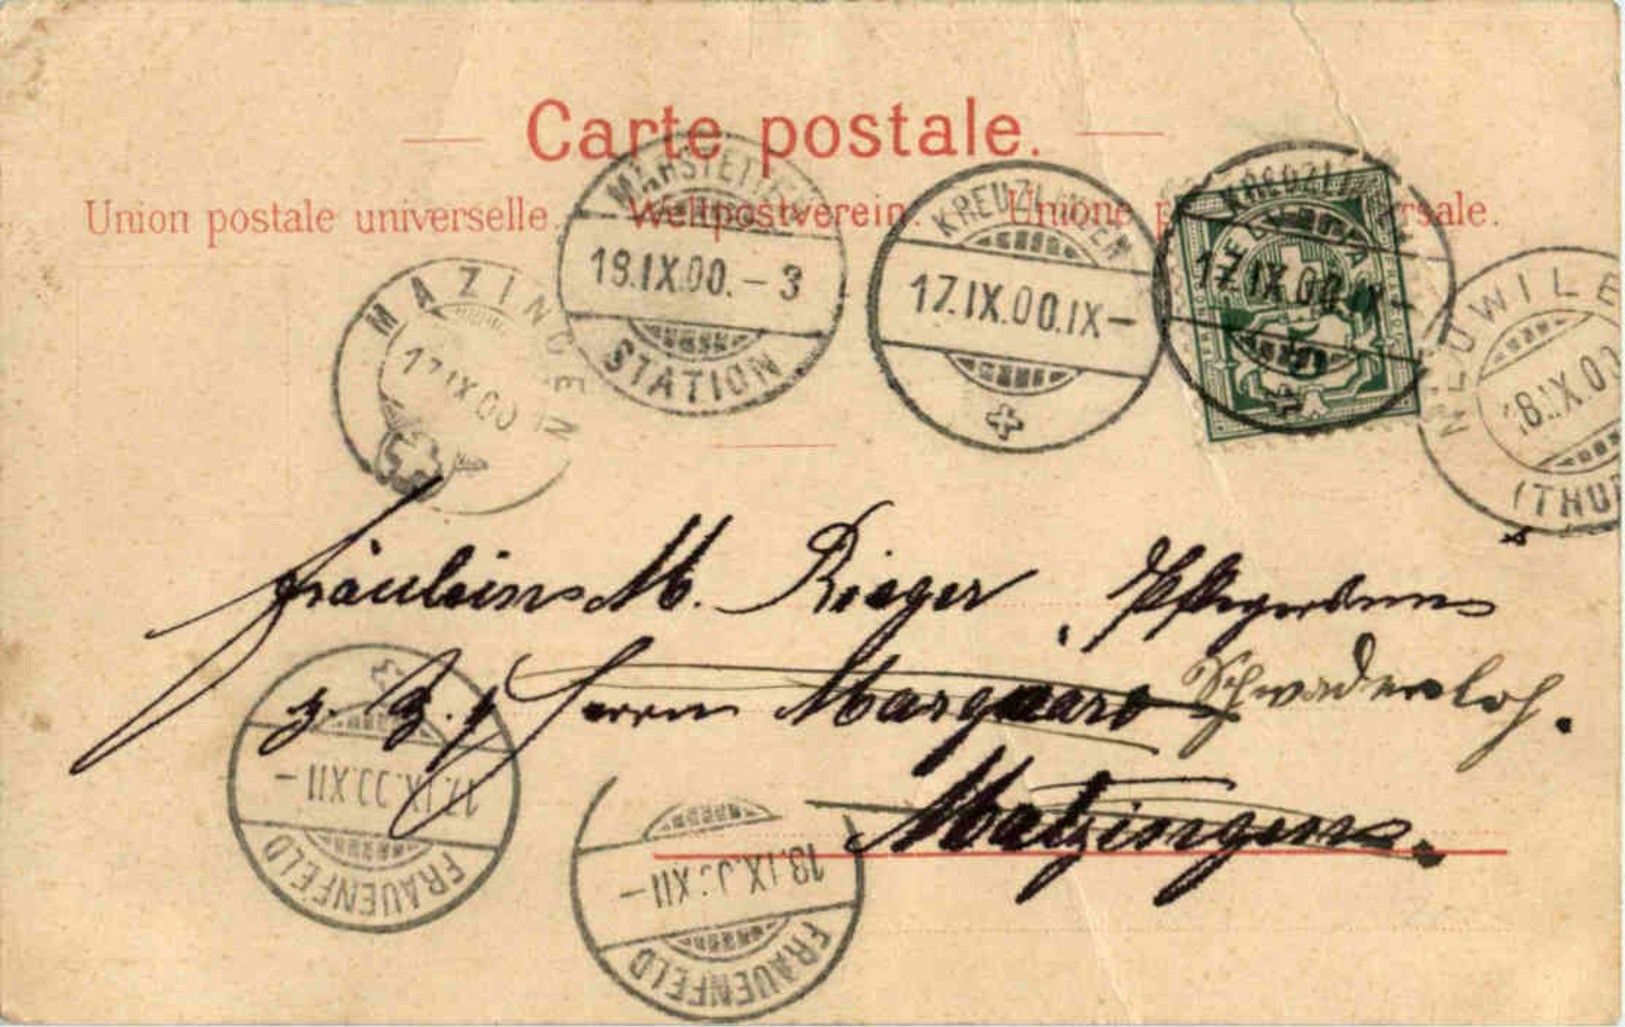 Carte postale.
Union postale universelle. Weltpostverein. Unione p rsale.
MÄRSTETTEN
18.IX.00.-3
STATION
KREUZLINGEN
17.IX.00.IX-
KREUZLINGEN
17.IX.00.IX-
MAZINGEN
17.IX.00
NEUWILE
18.IX.00
(THUR
Fräulein M. Rieger
z. Z. Herrn Schwaderloh.
Matzingen.
17.IX.00.XII-
FRAUENFELD
18.IX.00.XII-
FRAUENFELD